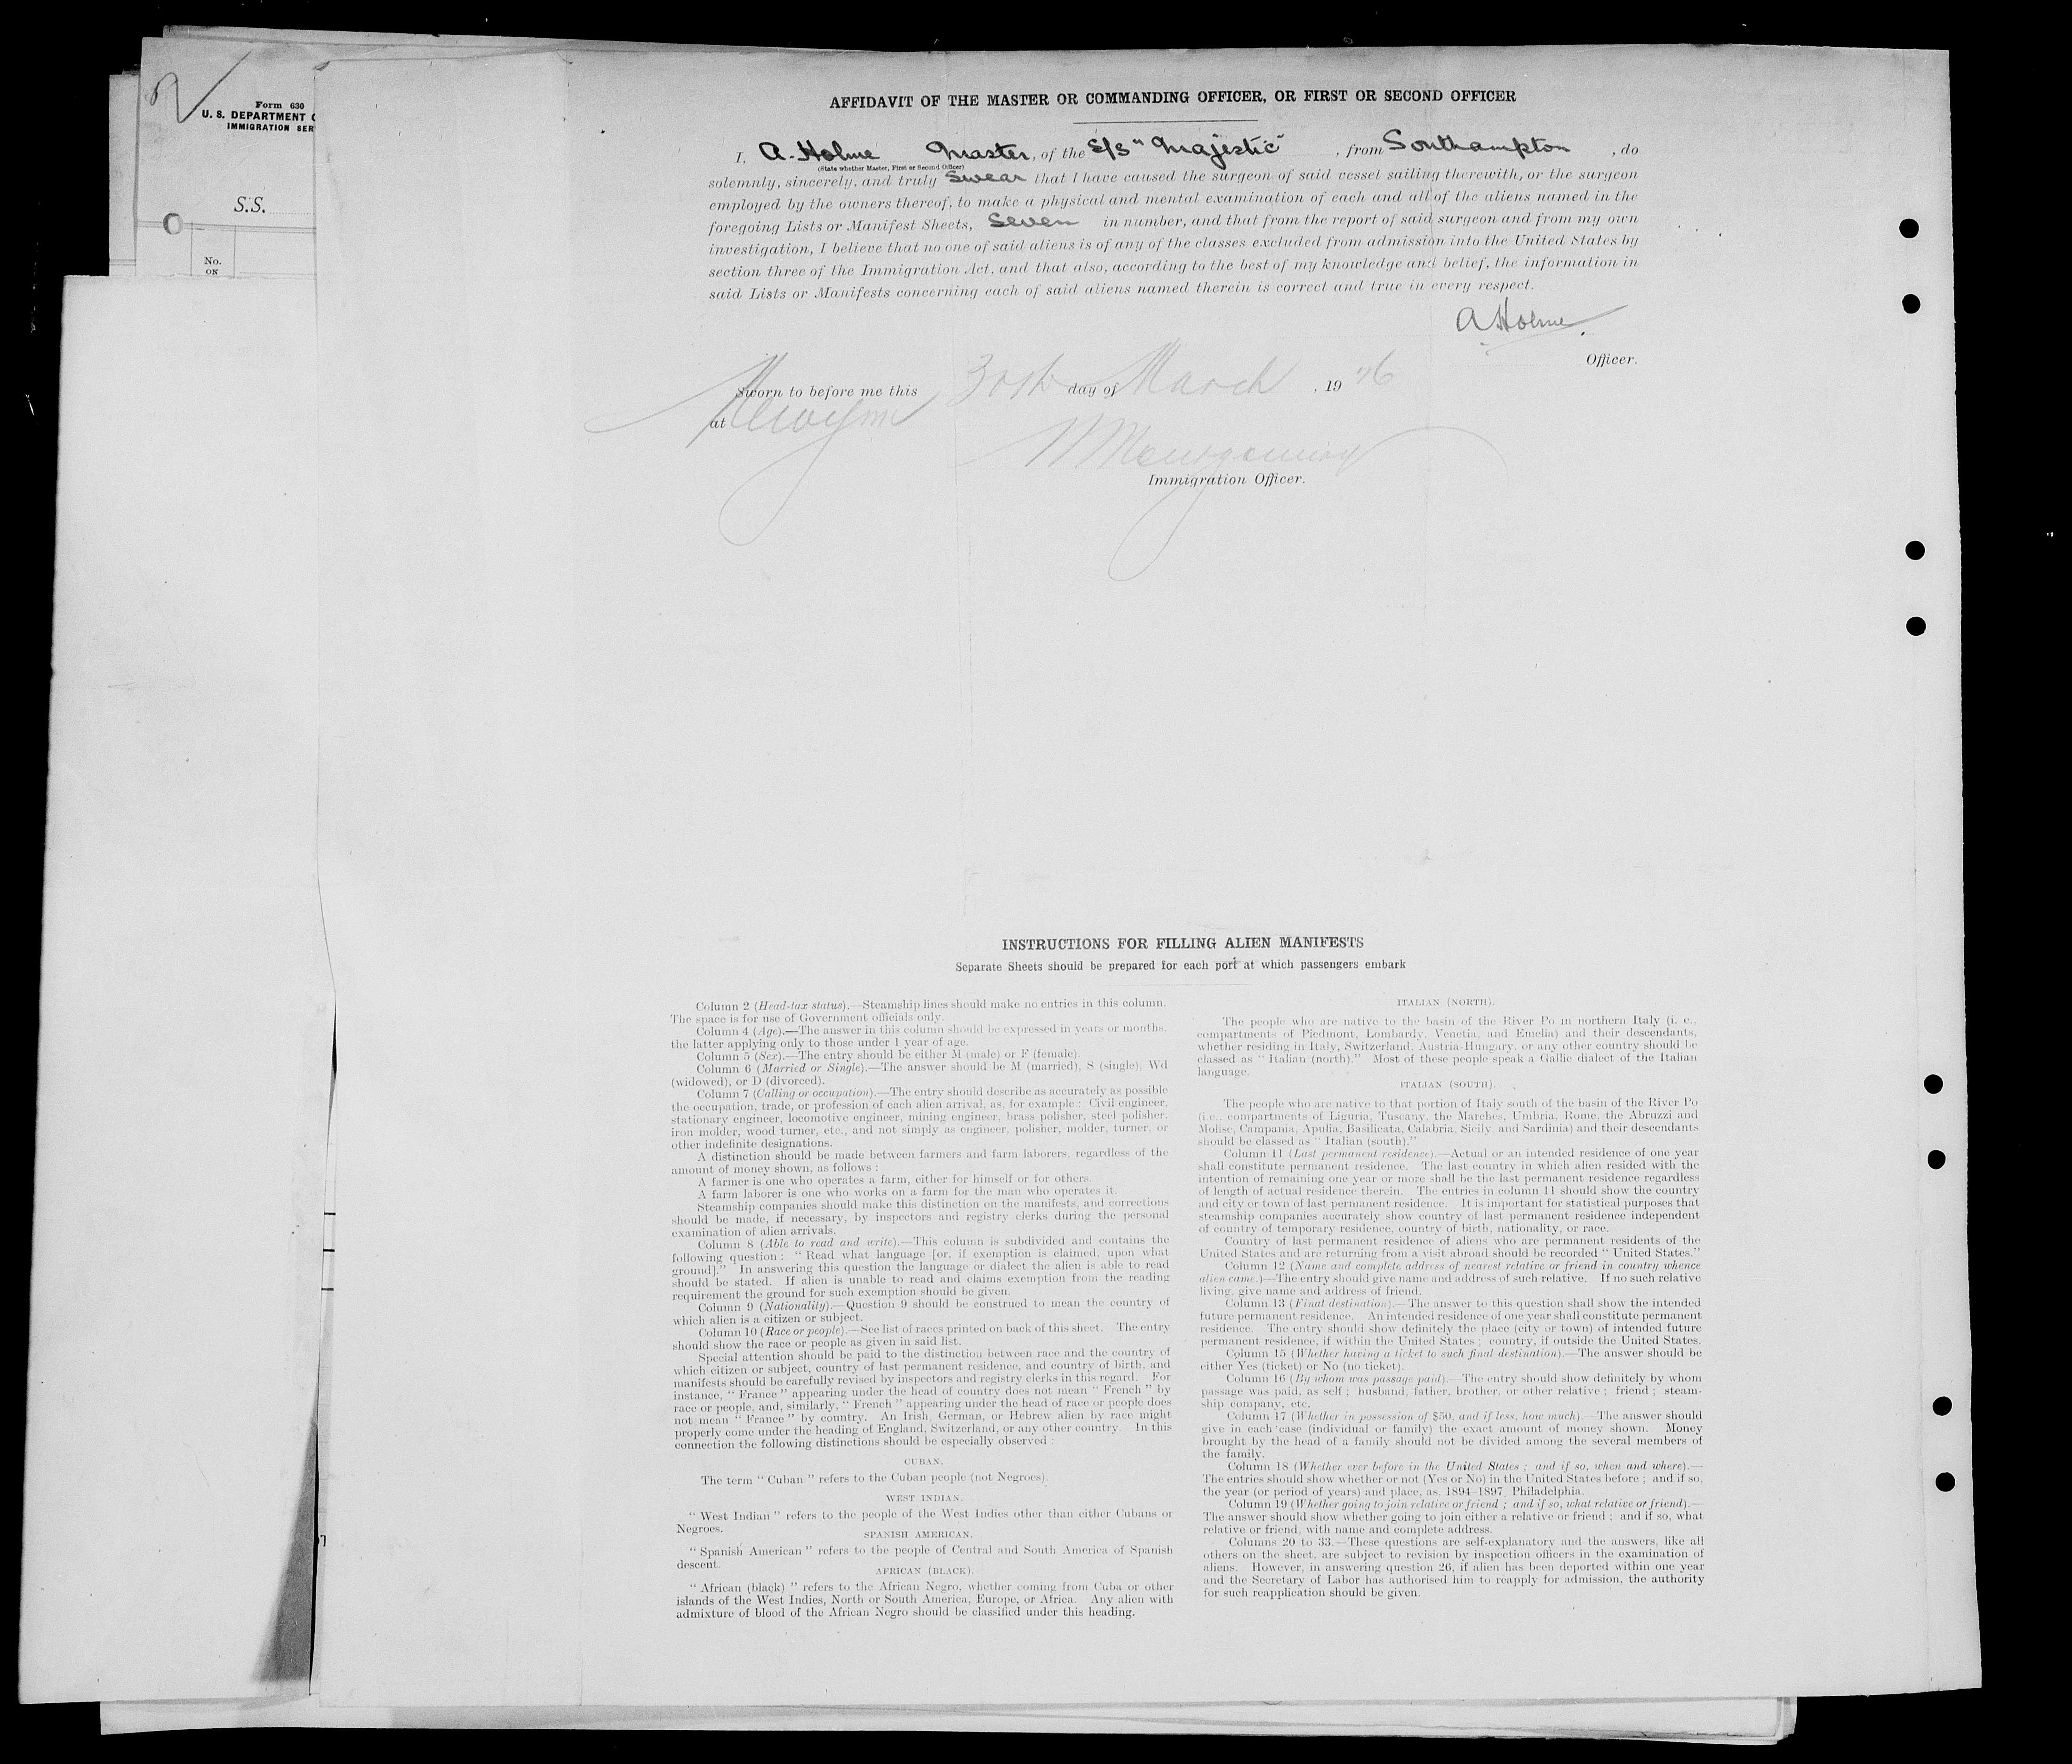 Form 630
U. S. DEPARTMENT
IMMIGRATION SER
S.S.
No.
ON
AFFIDAVIT OF THE MASTER OR COMMANDING OFFICER, OR FIRST OR SECOND OFFICER
I, A. Holme Master, of the S/S "Majestic", from Southampton, do
(State whether Master, First or Second Officer)
solemnly, sincerely, and truly swear that I have caused the surgeon of said vessel sailing therewith, or the surgeon
employed by the owners thereof, to make a physical and mental examination of each and all of the aliens named in the
foregoing Lists or Manifest Sheets, seven in number, and that from the report of said surgeon and from my own
investigation, I believe that no one of said aliens is of any of the classes excluded from admission into the United States by
section three of the Immigration Act, and that also, according to the best of my knowledge and belief, the information in
said Lists or Manifests concerning each of said aliens named therein is correct and true in every respect.
A Holme
Officer.
Sworn to before me this 30th day of March, 19
at
Montgomery
Immigration Officer.
INSTRUCTIONS FOR FILLING ALIEN MANIFESTS
Separate Sheets should be prepared for each port at which passengers embark
Column 2 (Head-tax status).—Steamship lines should make no entries in this column.
The space is for use of Government officials only.
Column 4 (Age).—The answer in this column should be expressed in years or months,
the latter applying only to those under 1 year of age.
Column 5 (Sex).—The entry should be either M (male) or F (female).
Column 6 (Married or Single).—The answer should be M (married), S (single), Wd
(widowed), or D (divorced).
Column 7 (Calling or occupation).—The entry should describe as accurately as possible
the occupation, trade, or profession of each alien arrival, as, for example : Civil engineer,
stationary engineer, locomotive engineer, mining engineer, brass polisher, steel polisher,
iron molder, wood turner, etc., and not simply as engineer, polisher, molder, turner, or
other indefinite designations.
A distinction should be made between farmers and farm laborers, regardless of the
amount of money shown, as follows :
A farmer is one who operates a farm, either for himself or for others.
A farm laborer is one who works on a farm for the man who operates it.
Steamship companies should make this distinction on the manifests, and corrections
should be made, if necessary, by inspectors and registry clerks during the personal
examination of alien arrivals.
Column 8 (Able to read and write).—This column is subdivided and contains the
following question : " Read what language [or, if exemption is claimed, upon what
ground]." In answering this question the language or dialect the alien is able to read
should be stated. If alien is unable to read and claims exemption from the reading
requirement the ground for such exemption should be given.
Column 9 (Nationality).—Question 9 should be construed to mean the country of
which alien is a citizen or subject.
Column 10 (Race or people).—See list of races printed on back of this sheet. The entry
should show the race or people as given in said list.
Special attention should be paid to the distinction between race and the country of
which citizen or subject, country of last permanent residence, and country of birth, and
manifests should be carefully revised by inspectors and registry clerks in this regard. For
instance, " France " appearing under the head of country does not mean " French " by
race or people, and, similarly, " French " appearing under the head of race or people does
not mean " France " by country. An Irish, German, or Hebrew alien by race might
properly come under the heading of England, Switzerland, or any other country. In this
connection the following distinctions should be especially observed :
CUBAN.
The term " Cuban " refers to the Cuban people (not Negroes).
WEST INDIAN.
" West Indian " refers to the people of the West Indies other than either Cubans or
Negroes.
SPANISH AMERICAN.
" Spanish American " refers to the people of Central and South America of Spanish
descent.
AFRICAN (BLACK).
" African (black) " refers to the African Negro, whether coming from Cuba or other
islands of the West Indies, North or South America, Europe, or Africa. Any alien with
admixture of blood of the African Negro should be classified under this heading.
ITALIAN (NORTH).
The people who are native to the basin of the River Po in northern Italy (i. e.,
compartments of Piedmont, Lombardy, Venetia, and Emelia) and their descendants,
whether residing in Italy, Switzerland, Austria-Hungary, or any other country should be
classed as " Italian (north)." Most of these people speak a Gallic dialect of the Italian
language.
ITALIAN (SOUTH).
The people who are native to that portion of Italy south of the basin of the River Po
(i.e., compartments of Liguria, Tuscany, the Marches, Umbria, Rome, the Abruzzi and
Molise, Campania, Apulia, Basilicata, Calabria, Sicily, and Sardinia) and their descendants
should be classed as " Italian (south)."
Column 11 (Last permanent residence).—Actual or an intended residence of one year
shall constitute permanent residence. The last country in which alien resided with the
intention of remaining one year or more shall be the last permanent residence regardless
of length of actual residence therein. The entries in column 11 should show the country
and city or town of last permanent residence. It is important for statistical purposes that
steamship companies accurately show country of last permanent residence independent
of country of temporary residence, country of birth, nationality, or race.
Country of last permanent residence of aliens who are permanent residents of the
United States and are returning from a visit abroad should be recorded " United States."
Column 12 (Name and complete address of nearest relative or friend in country whence
alien came.)—The entry should give name and address of such relative. If no such relative
living, give name and address of friend.
Column 13 (Final destination).—The answer to this question shall show the intended
future permanent residence. An intended residence of one year shall constitute permanent
residence. The entry should show definitely the place (city or town) of intended future
permanent residence, if within the United States ; country, if outside the United States.
Column 15 (Whether having a ticket to such final destination).—The answer should be
either Yes (ticket) or No (no ticket).
Column 16 (By whom was passage paid).—The entry should show definitely by whom
passage was paid, as self ; husband, father, brother, or other relative ; friend ; steam-
ship company, etc.
Column 17 (Whether in possession of $50, and if less, how much).—The answer should
give in each case (individual or family) the exact amount of money shown. Money
brought by the head of a family should not be divided among the several members of
the family.
Column 18 (Whether ever before in the United States ; and if so, when and where).—
The entries should show whether or not (Yes or No) in the United States before ; and if so,
the year (or period of years) and place, as, 1894–1897, Philadelphia.
Column 19 (Whether going to join relative or friend ; and if so, what relative or friend).—
The answer should show whether going to join either a relative or friend ; and if so, what
relative or friend, with name and complete address.
Columns 20 to 33.—These questions are self-explanatory and the answers, like all
others on the sheet, are subject to revision by inspection officers in the examination of
aliens. However, in answering question 26, if alien has been deported within one year
and the Secretary of Labor has authorised him to reapply for admission, the authority
for such reapplication should be given.